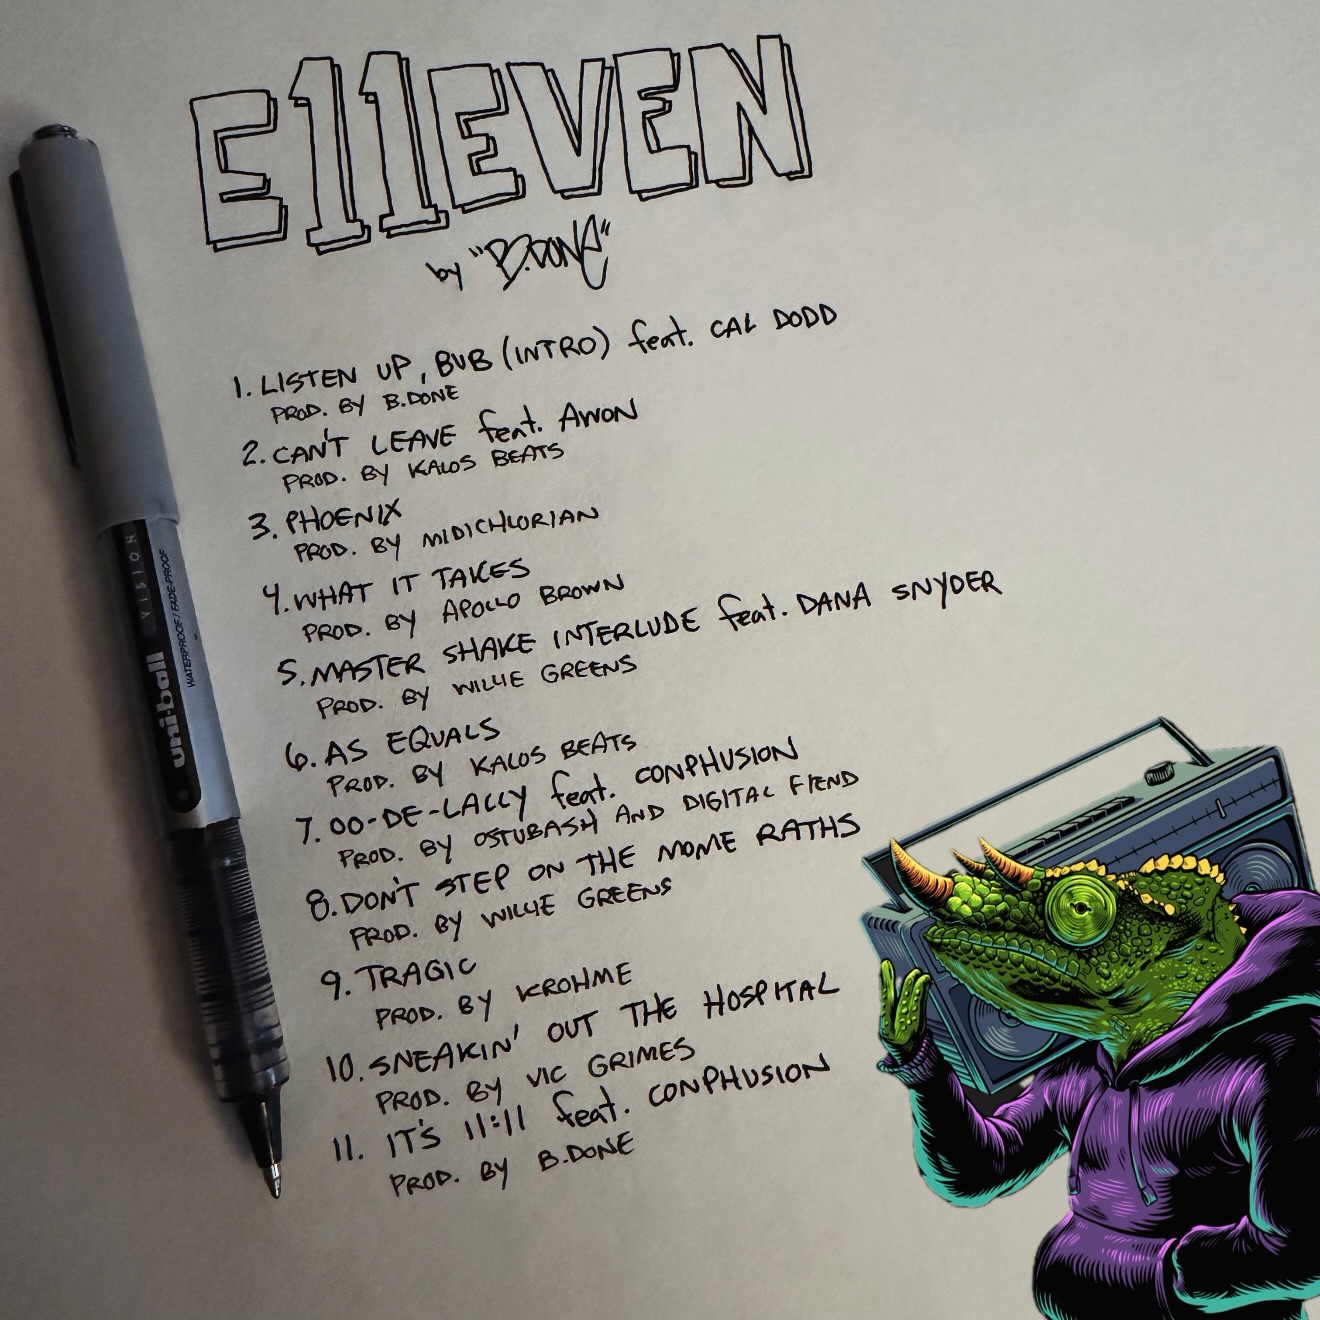 E11EVEN
by "B.DONE"
1. LISTEN UP, BUB (INTRO) feat. CAL DODD
PROD. BY B.DONE
2. CAN'T LEAVE feat. AWON
PROD. BY KALOS BEATS
3. PHOENIX
PROD. BY MIDICHLORIAN
4. WHAT IT TAKES
PROD. BY APOLLO BROWN
5. MASTER SHAKE INTERLUDE feat. DANA SNYDER
PROD. BY WILLIE GREENS
6. AS EQUALS
PROD. BY KALOS BEATS
7. OO-DE-LALLY feat. CONPHUSION
PROD. BY OSTUBASH AND DIGITAL FIEND
8. DON'T STEP ON THE MOME RATHS
PROD. BY WILLIE GREENS
9. TRAGIC
PROD. BY KROHME
10. SNEAKIN' OUT THE HOSPITAL
PROD. BY VIC GRIMES
11. IT'S 11:11 feat. CONPHUSION
PROD. BY B.DONE
uni-ball VISION
WATERPROOF/FADE-PROOF